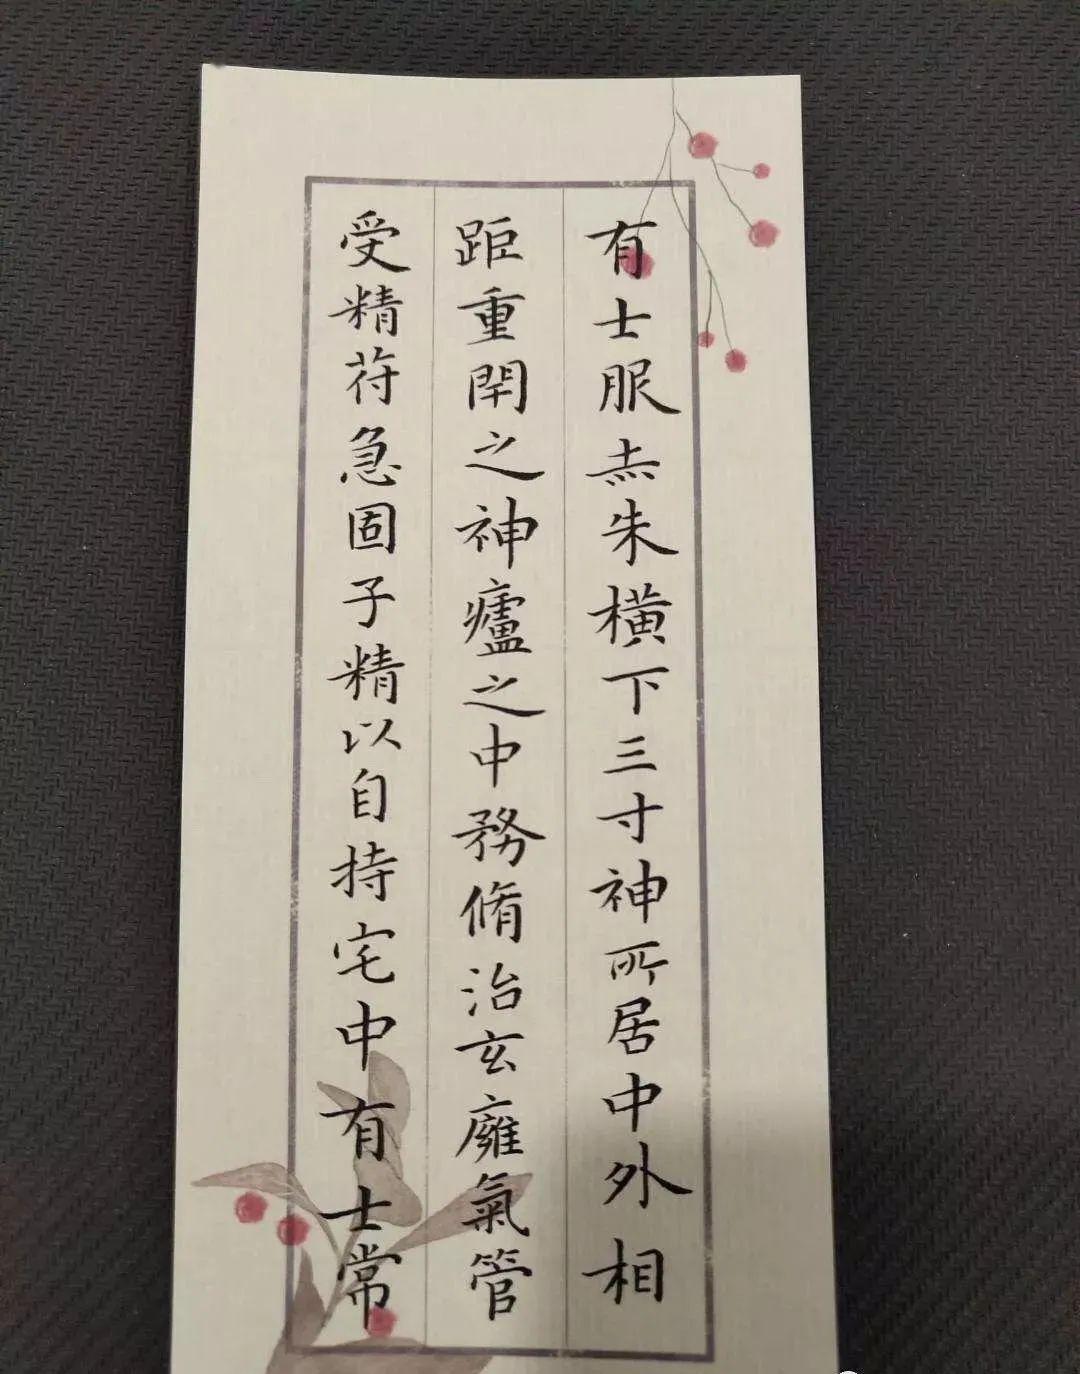 有士服赤朱橫下三寸神所居中外相
距重閇之神廬之中務脩治玄廱氣管
受精苻急固子精以自持宅中有士常